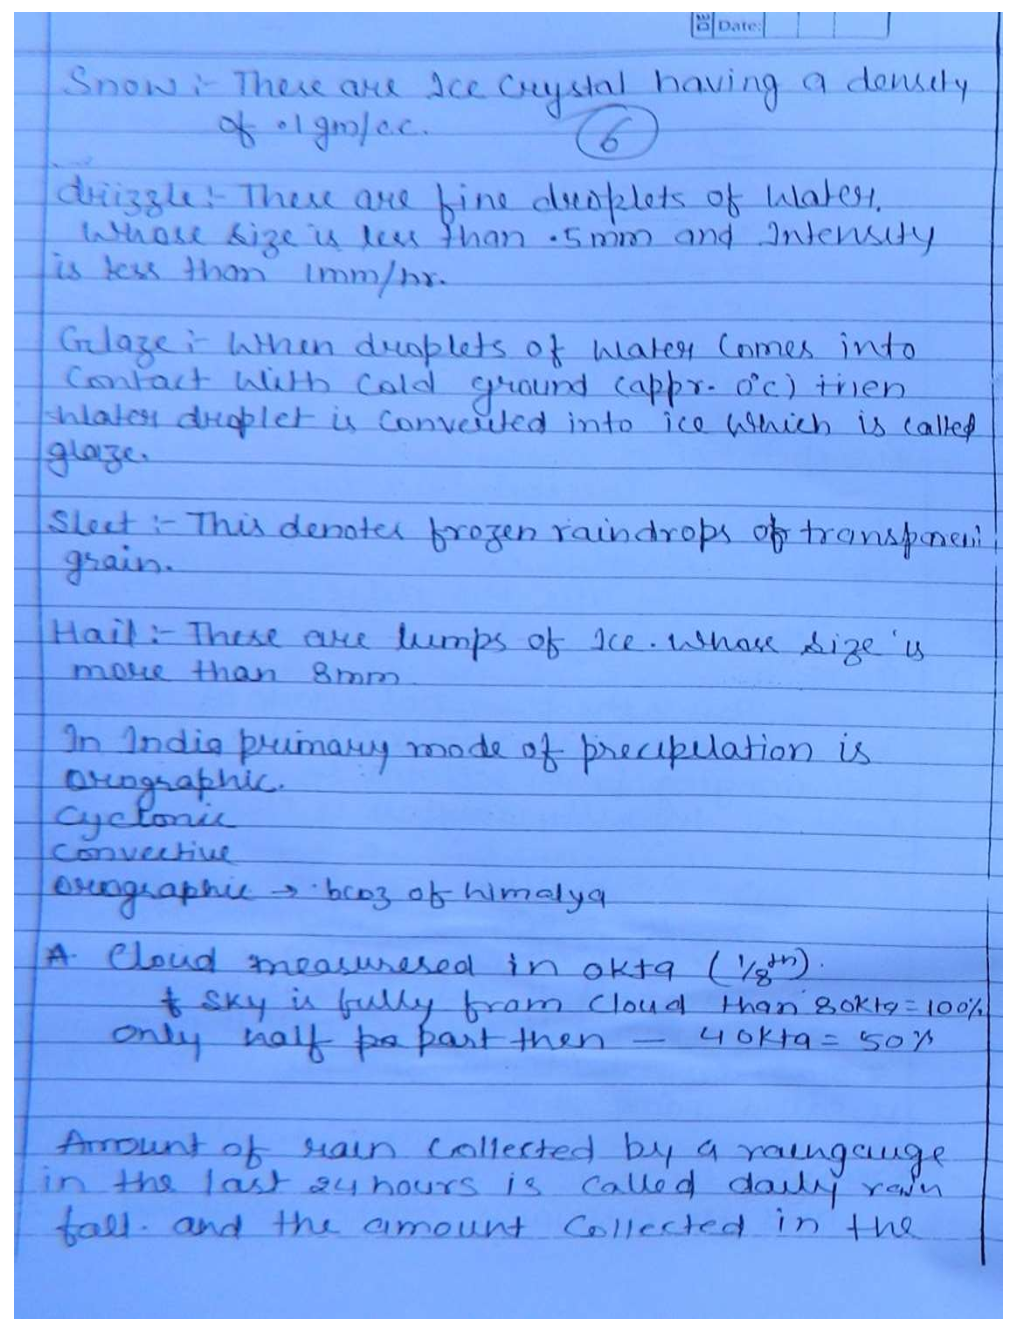 Date:
Snow :- These are Ice Crystal having a density
of .1 gm/cc.
6
drizzle :- These are fine droplets of Water.
Whose size is less than .5mm and Intensity
is less than 1mm/hr.
Glaze :- When droplets of water Comes into
Contact With Cold ground (appr. 0°c) then
Water droplet is Converted into ice Which is called
glaze.
Sleet :- This denotes frozen raindrops of transparent
grain.
Hail :- These are lumps of Ice. Whose size is
more than 8mm
In India primary mode of precipitation is
Orographic.
Cyclonic
Convective
Orographic → bcoz of himalya
A. Cloud measuresed in okta (1/8th).
SKy is fully from Cloud than 8okta = 100%
Only half part then — 4 okta = 50%
Amount of rain Collected by a raingauge
in the last 24 hours is called daily rain
fall. and the amount Collected in the